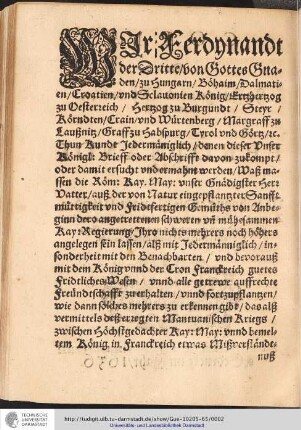 WIr Ferdynandt
der Dritte/von Gottes Gna-
den/zu Hungarn/Böhaim/Dalmati-
en/Croatien/vnd Sclauonien König/Ertzhertzog
zu Oesterreich / Hertzog zu Burgundt / Steyr /
Körndten/Crain/vnd Würtenberg / Marggraff zu
Laußnitz/Graff zu Habspurg/Tyrol vnd Görtz/ꝛc.
Thun Kundt Jedermäniglich/denen dieser Vnser
Königl: Brieff oder Abschrifft davon zukompt/
oder damit ersucht vnd ermahnt werden/Waß ma-
ssen die Röm: Kay. May: vnser Gnädigster Herr
Vatter/auß der von Natur eingepflantzten Sanfft-
mütigkeit vnd Fridtfertigen Gemüths von Anbe-
ginn ders angetrettenen schweren vñ mühesammen
Kay: Regierung/Ihro nichts mehrers noch höhers
angelegen sein lassen/alß mit Jedermänniglich/in-
sonderheit mit den Benachbarten / vnd bevorauß
mit dem König vnnd der Cron Franckreich guetes
Fridtliches Wesen / vnnd alle getrewe auffrechte
Freündtschafft zuerhalten/vnnd fortzupflantzen/
wie dann solches mehrers zu erkennen gibt/das alß
vermittels deß erzogten Mantuanischen Kriegs /
zwischen Höchstgedachter Kay: May: vnnd bemel-
tem König in Franckreich etwas Mißverständt-
nuß
1636
TECHNISCHE
UNIVERSITÄT
DARMSTADT
http://tudigit.ulb.tu-darmstadt.de/show/Gue-10205-65/0002
Universitäts- und Landesbibliothek Darmstadt